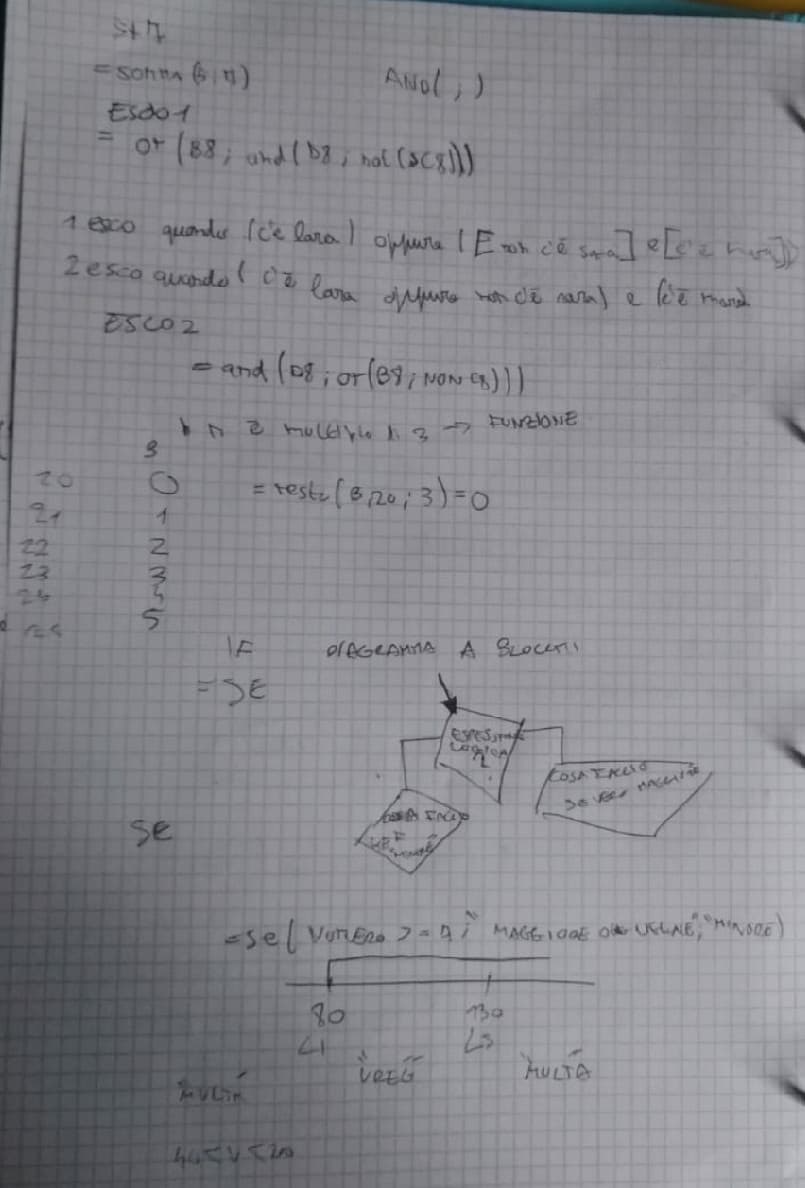 5+7
=somma(5;7) AND( ; )
ESCO1
= or(B8; and(D8; not(C8)))
1 esco quando (c'è lara) oppure [E non c'è sara] e [c'è
2 esco quando ( c'è lara oppure non c'è sara) e (c'è
ESCO2
=and(D8; or(B8; NON C8)))
n è multiplo di 3 → FUNZIONE
3
20 0 =resto(B20; 3)=0
21 1
22 2
23 3
24 4
5
IF DIAGRAMMA A BLOCCHI
=SE
ESPRESSIONE
LOGICA
COSA FACCIO
SE VERO
COSA FACCIO
SE
SE
=se( NUMERO >= 7; "MAGGIORE O UGUALE"; "MINORE")
80 130
L1 L3
"MULTA" "VREG" "MULTA"